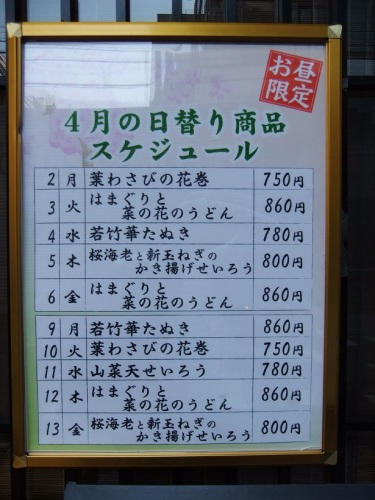 お昼
限定
4月の日替り商品
スケジュール
2 月 葉わさびの花巻 750円
3 火 はまぐりと
菜の花のうどん 860円
4 水 若竹華たぬき 780円
5 木 桜海老と新玉ねぎの
かき揚げせいろう 800円
6 金 はまぐりと
菜の花のうどん 860円
9 月 若竹華たぬき 860円
10 火 葉わさびの花巻 750円
11 水 山菜天せいろう 780円
12 木 はまぐりと
菜の花のうどん 860円
13 金 桜海老と新玉ねぎの
かき揚げせいろう 800円